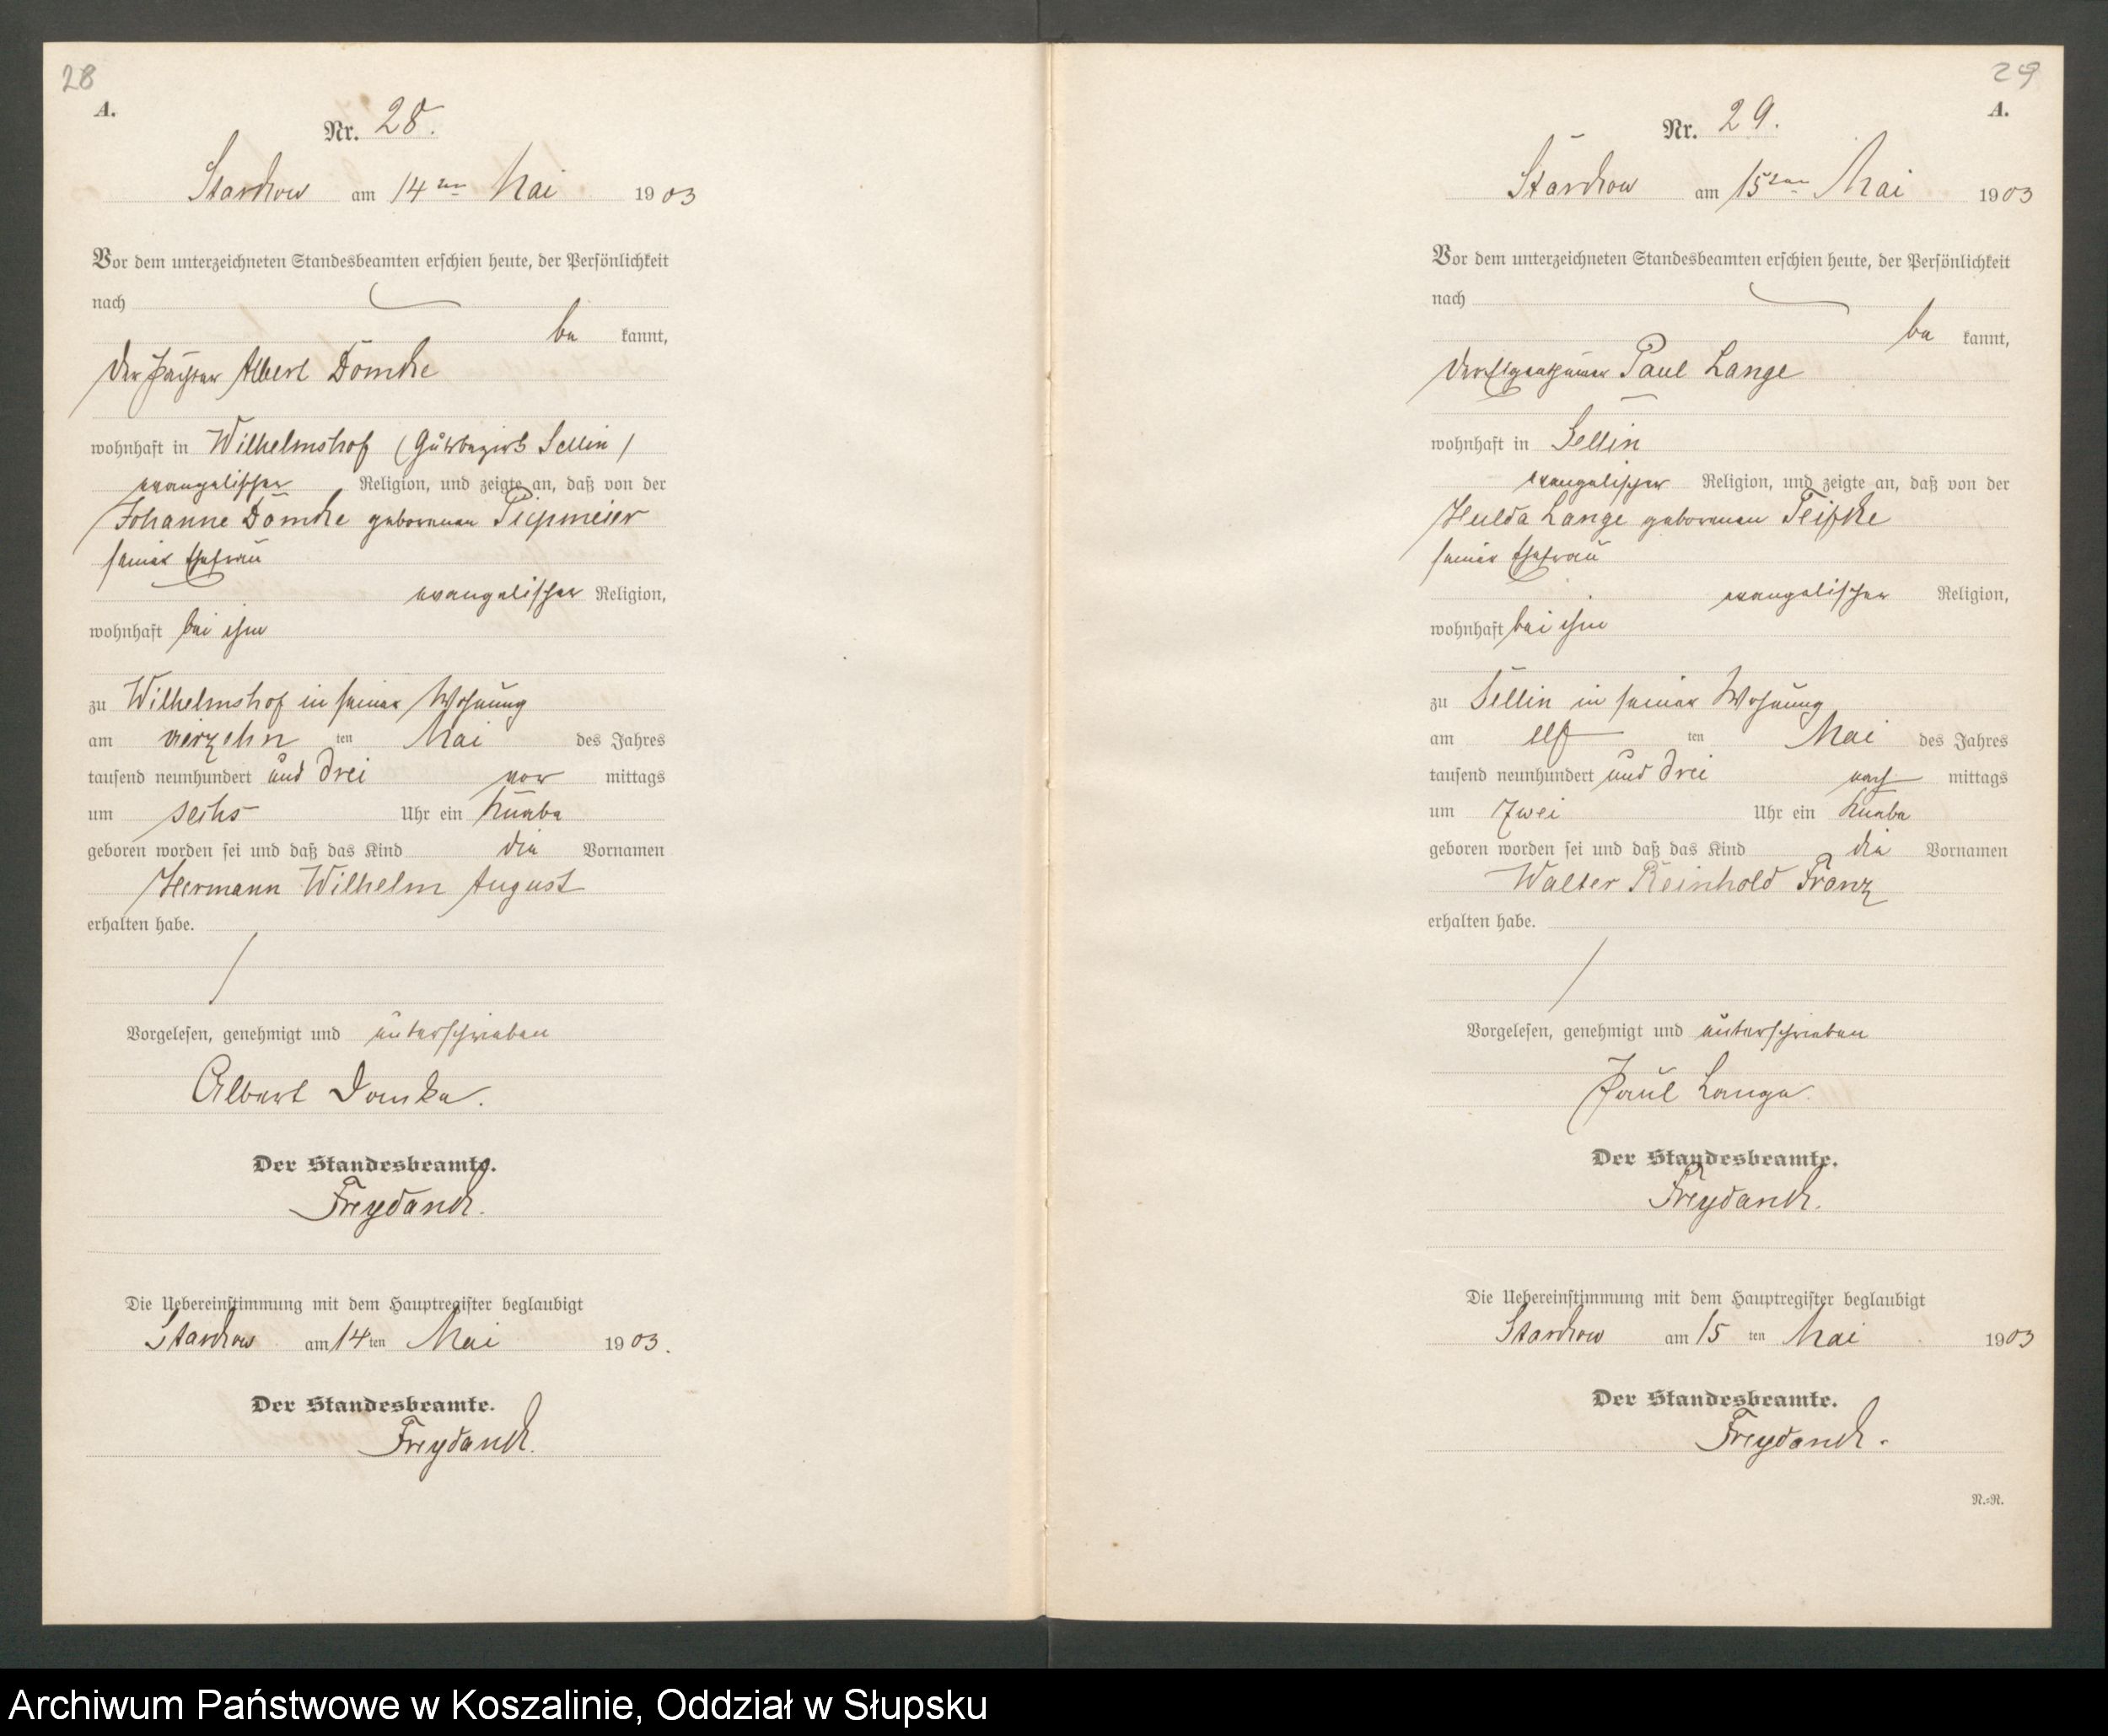 28
A.
Nr. 28.
Starckow am 14ten Mai 1903
Vor dem unterzeichneten Standesbeamten erschien heute, der Persönlichkeit
nach
be kannt,
der Pächter Albert Domcke
wohnhaft in Wilhelmshof (Gutsbezirk Sellin)
evangelischer Religion, und zeigte an, daß von der
Johanne Domcke geborenen Piepmeier
seiner Ehefrau
evangelischer Religion,
wohnhaft bei ihm
zu Wilhelmshof in seiner Wohnung
am vierzehn ten Mai des Jahres
tausend neunhundert und drei vor mittags
um sechs Uhr ein Knabe
geboren worden sei und daß das Kind die Vornamen
Hermann Wilhelm August
erhalten habe.
Vorgelesen, genehmigt und unterschrieben
Albert Domke.
Der Standesbeamte.
Freydanck.
Die Uebereinstimmung mit dem Hauptregister beglaubigt
Starckow am 14ten Mai 1903.
Der Standesbeamte.
Freydanck.
29
A.
Nr. 29.
Starckow am 15ten Mai 1903
Vor dem unterzeichneten Standesbeamten erschien heute, der Persönlichkeit
nach
be kannt,
der Eigenthümer Paul Lange
wohnhaft in Sellin
evangelischer Religion, und zeigte an, daß von der
Hulda Lange geborenen
seiner Ehefrau
evangelischer Religion,
wohnhaft bei ihm
zu Sellin in seiner Wohnung
am elf ten Mai des Jahres
tausend neunhundert und drei nach mittags
um zwei Uhr ein Knabe
geboren worden sei und daß das Kind die Vornamen
Walter Reinhold Franz
erhalten habe.
Vorgelesen, genehmigt und unterschrieben
Paul Lange.
Der Standesbeamte.
Freydanck.
Die Uebereinstimmung mit dem Hauptregister beglaubigt
Starckow am 15 ten Mai 1903
Der Standesbeamte.
Freydanck.
N.=N.
Archiwum Państwowe w Koszalinie, Oddział w Słupsku